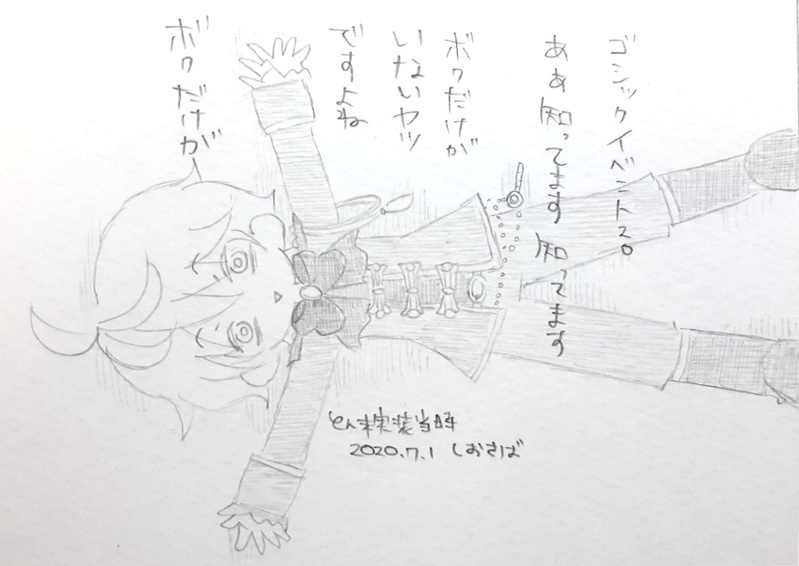 ゴシックイベント20
ああ知ってます 知ってます
ボクだけが
いないヤツ
ですよね
ボクだけが
未実装当時
2020.7.1 しおさば